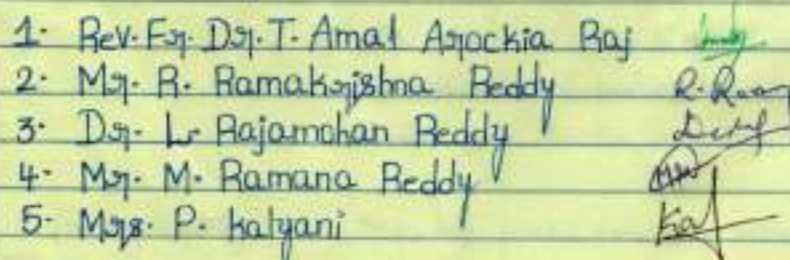 1. Rev. Fr. Dr. T. Amal Arockia Raj
2. Mr. R. Ramakrishna Reddy
3. Dr. L. Rajamohan Reddy
4. Mr. M. Ramana Reddy
5. Mrs. P. Kalyani